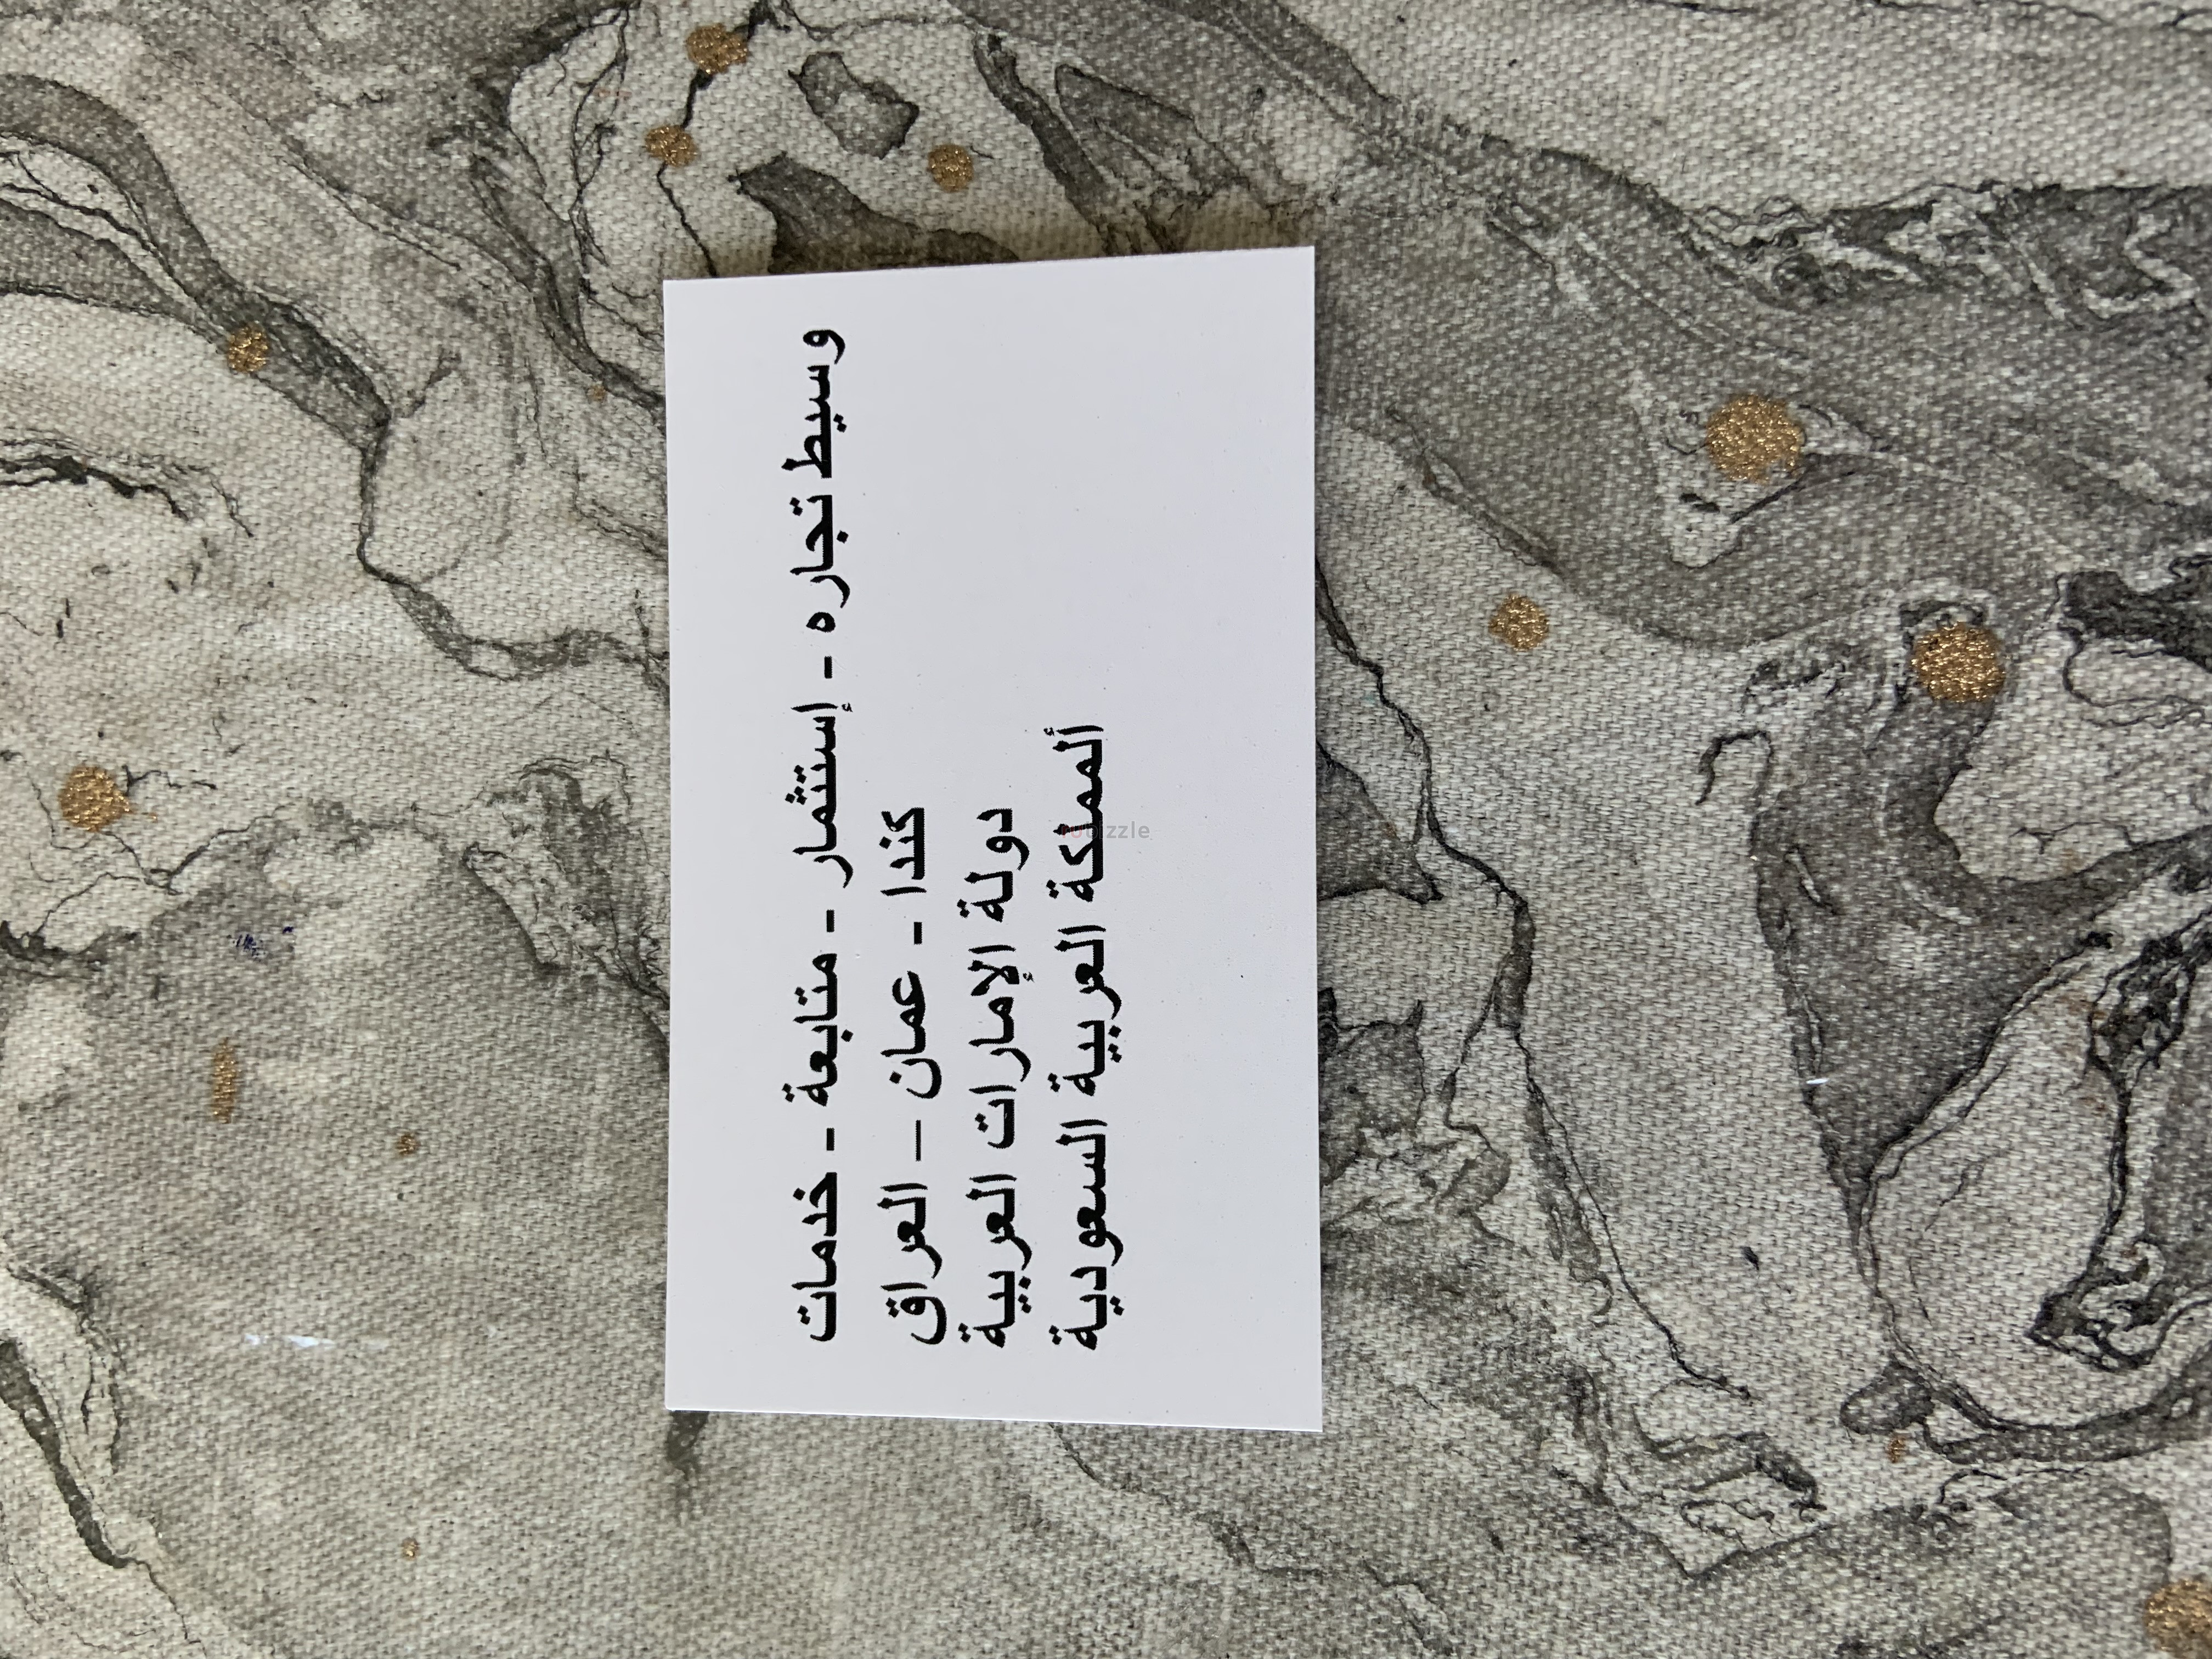 وسيط تجاره - إستثمار - متابعة - خدمات
كندا - عمان – العراق
دولة الإمارات العربية
ألمملكة العربية السعودية
rubizzle